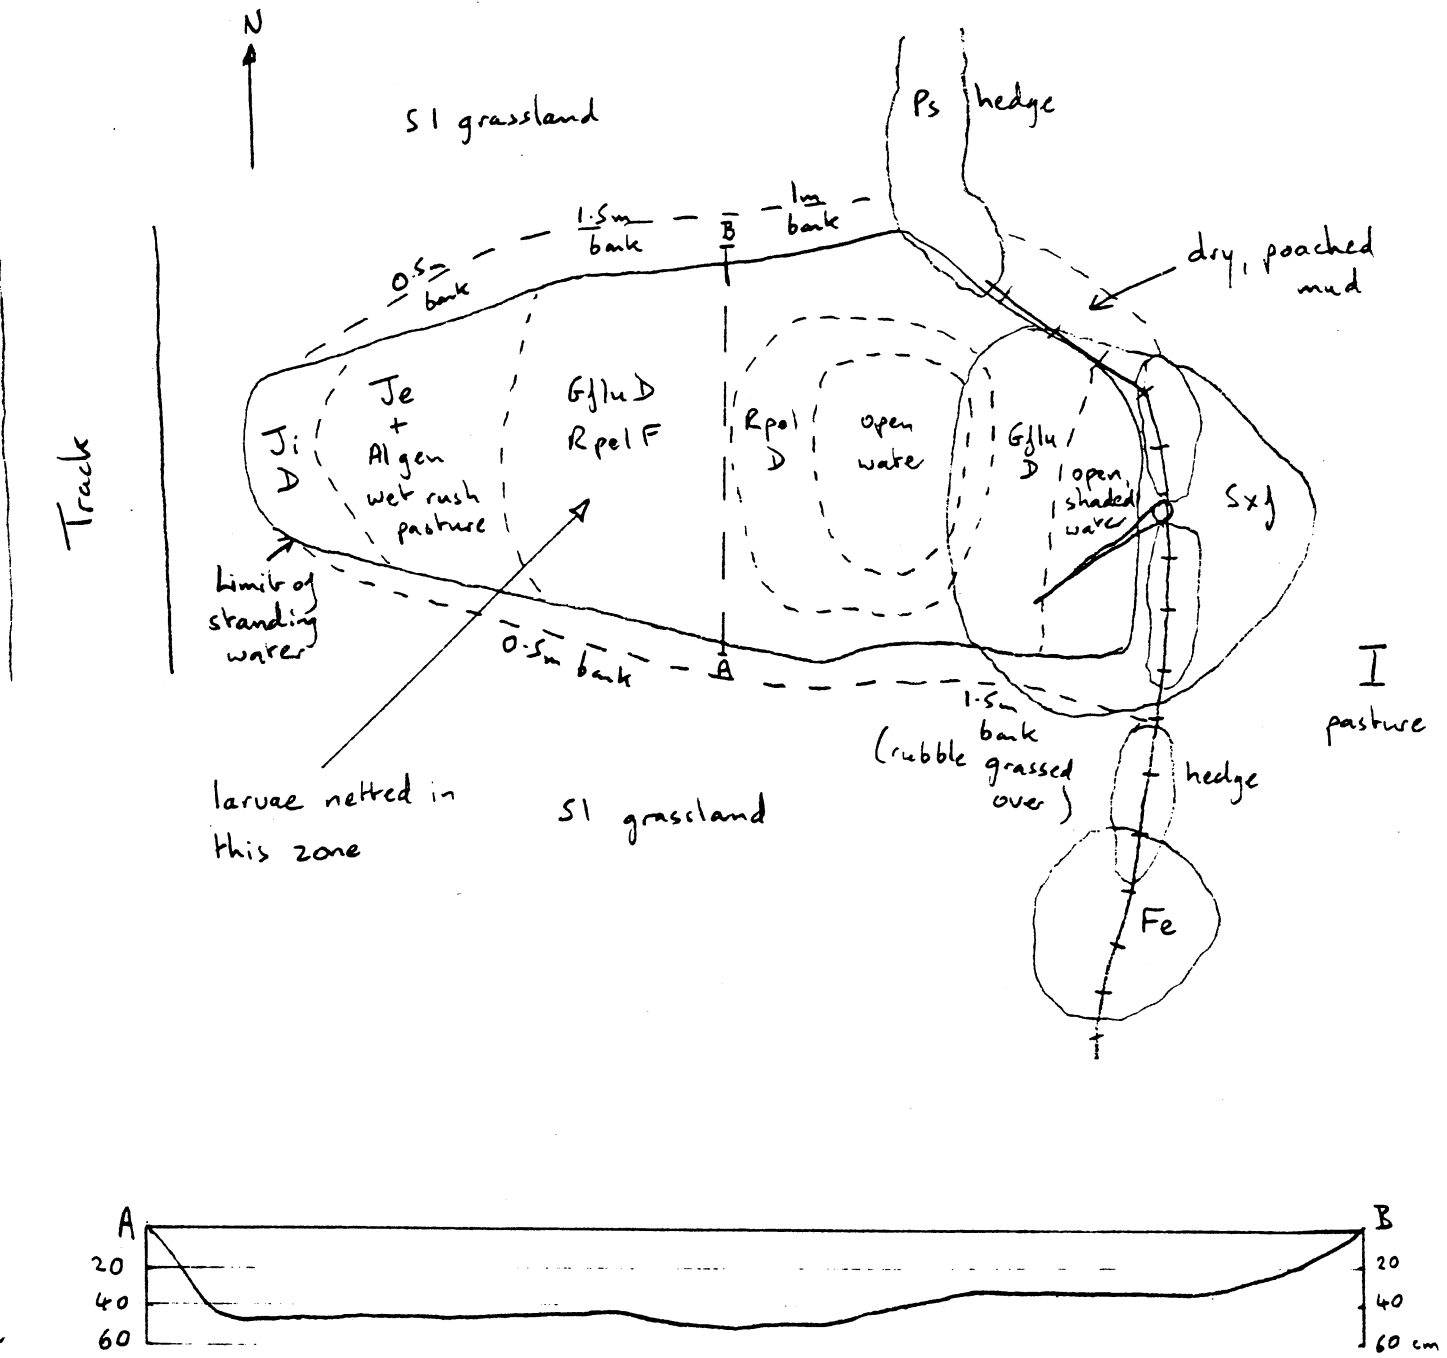 N
SI grassland
Ps
hedge
0.5m
bank
1.5m
bank
B
1m
bank
dry, poached
mud
Track
Ji
D
Je
+
Al gen
wet rush
pasture
Gflu D
Rpel F
Rpel
D
open
water
Gflu
D
open,
shaded
water
Sxf
Limit of
standing
water
0.5m bank
A
1.5m
bank
(rubble grassed
over)
I
pasture
hedge
larvae netted in
this zone
SI grassland
Fe
A
B
20
40
60
20
40
60 cm